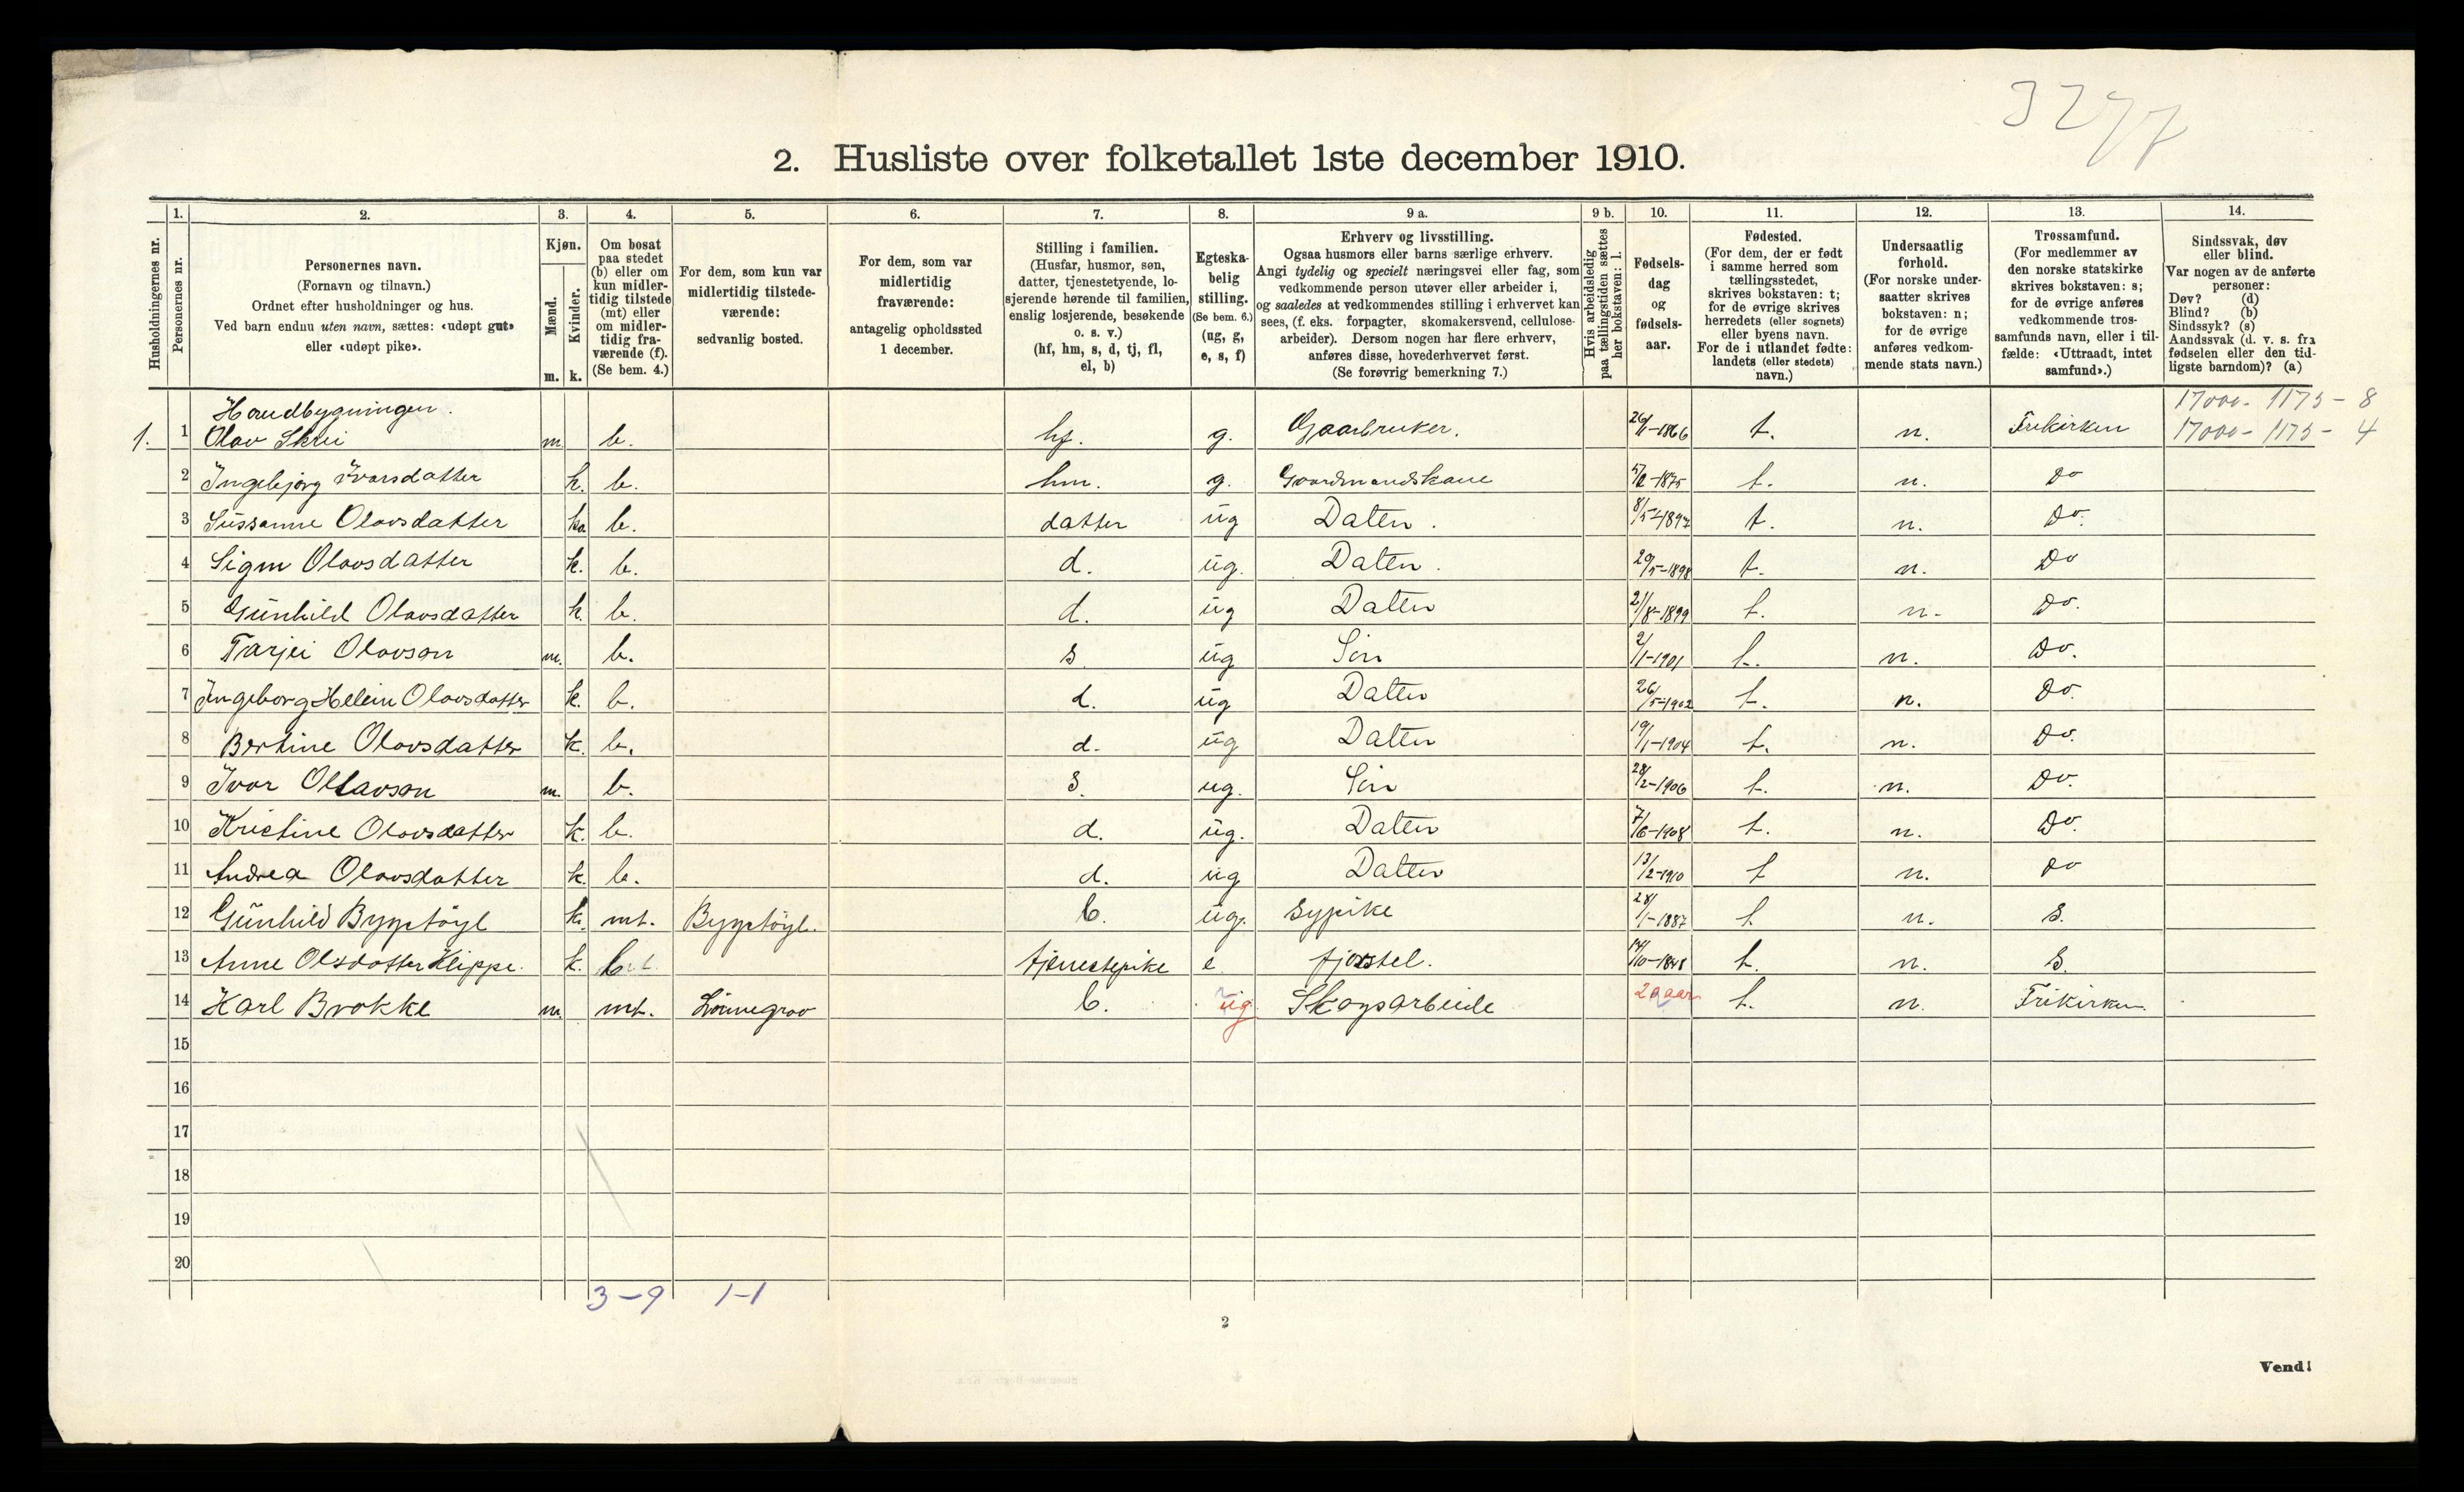 3277
2. Husliste over folketallet 1ste december 1910.
Husholdningernes nr.
1. Personernes nr.
2. Personernes navn.
(Fornavn og tilnavn.)
Ordnet efter husholdninger og hus.
Ved barn endnu uten navn, sættes: «udøpt gut»
eller «udøpt pike».
3. Kjøn.
Mænd. m.
Kvinder. k.
4. Om bosat
paa stedet
(b) eller om
kun midler-
tidig tilstede
(mt) eller
om midler-
tidig fra-
værende (f).
(Se bem. 4.)
5. For dem, som kun var
midlertidig tilstede-
værende:
sedvanlig bosted.
6. For dem, som var
midlertidig
fraværende:
antagelig opholdssted
1 december.
7. Stilling i familien.
(Husfar, husmor, søn,
datter, tjenestetyende, lo-
sjerende hørende til familien,
enslig losjerende, besøkende
o. s. v.)
(hf, hm, s, d, tj, fl,
el, b)
8. Egteska-
belig
stilling.
(Se bem. 6.)
(ug, g,
e, s, f)
9 a. Erhverv og livsstilling.
Ogsaa husmors eller barns særlige erhverv.
Angi tydelig og specielt næringsvei eller fag, som
vedkommende person utøver eller arbeider i,
og saaledes at vedkommendes stilling i erhvervet kan
sees, (f. eks. forpagter, skomakersvend, cellulose-
arbeider). Dersom nogen har flere erhverv,
anføres disse, hovederhvervet først.
(Se forøvrig bemerkning 7.)
9 b. Hvis arbeidsledig
paa tællingstiden sættes
her bokstaven: l.
10. Fødsels-
dag
og
fødsels-
aar.
11. Fødested.
(For dem, der er født
i samme herred som
tællingsstedet,
skrives bokstaven: t;
for de øvrige skrives
herredets (eller sognets)
eller byens navn.
For de i utlandet fødte:
landets (eller stedets)
navn.)
12. Undersaatlig
forhold.
(For norske under-
saatter skrives
bokstaven: n;
for de øvrige
anføres vedkom-
mende stats navn.)
13. Trossamfund.
(For medlemmer av
den norske statskirke
skrives bokstaven: s;
for de øvrige anføres
vedkommende tros-
samfunds navn, eller i til-
fælde: «Uttraadt, intet
samfund».)
14. Sindssvak, døv
eller blind.
Var nogen av de anførte
personer:
Døv? (d)
Blind? (b)
Sindssyk? (s)
Aandssvak (d. v. s. fra
fødselen eller den tid-
ligste barndom)? (a)
Hovudbygningen. 17000 - 1175 - 8
1. 1 Olav Skrei m. b. hf. g. Gaarbruker. 26/1-1866 t. n. Frikirken 17000 - 1175 - 4
2 Ingebjørg Ivarsdatter k. b. hm. g. Gaardmandskane 1875 t. n. Do
3 Sussanne Olavsdatter k b. datter ug Datter. 8/5-1897 t. n. Do.
4 Olavsdatter k. b. d. ug. Datter. 20/5-1898 t. n. Do
5 Gunhild Olavsdatter k. b. d. ug Datter 21/8-1899 t. n. Do.
6 Tarjei Olavson m. b. s ug Sön 2/1-1901 t. n. Do.
7 Ingeborg Helein Olavsdatter k. b. d. ug Datter 26/5-1902 t. n. Do.
8 Bertine Olavsdatter k. b. d. ug Datter 19/1-1904 t. n. Do.
9 Ivor Ollavson m. b. s. ug. Sön 28/2-1906 t. n. Do.
10 Kristine Olavsdatter k. b. d. ug. Datter 7/6-1908 t. n. Do.
11 Andrea Olavsdatter k. b. d. ug Datter 13/2-1910 t n. Do
12 Gunhild Bygstöyl k. mt. Bygstöyl. b. ug. Sypike 28/1-1887 t n. S.
13 Anne Olsdatter Klippe. k. b tjenestepike e fjosstel. 14/10-1848 t. n. S.
14 Karl Brokke m mt. Lönnegrav b. ug. Skogsarbeide 20 aar t. n. Frikirken
15
16
17
18
19
20
3-9 1-1
2
Vend!